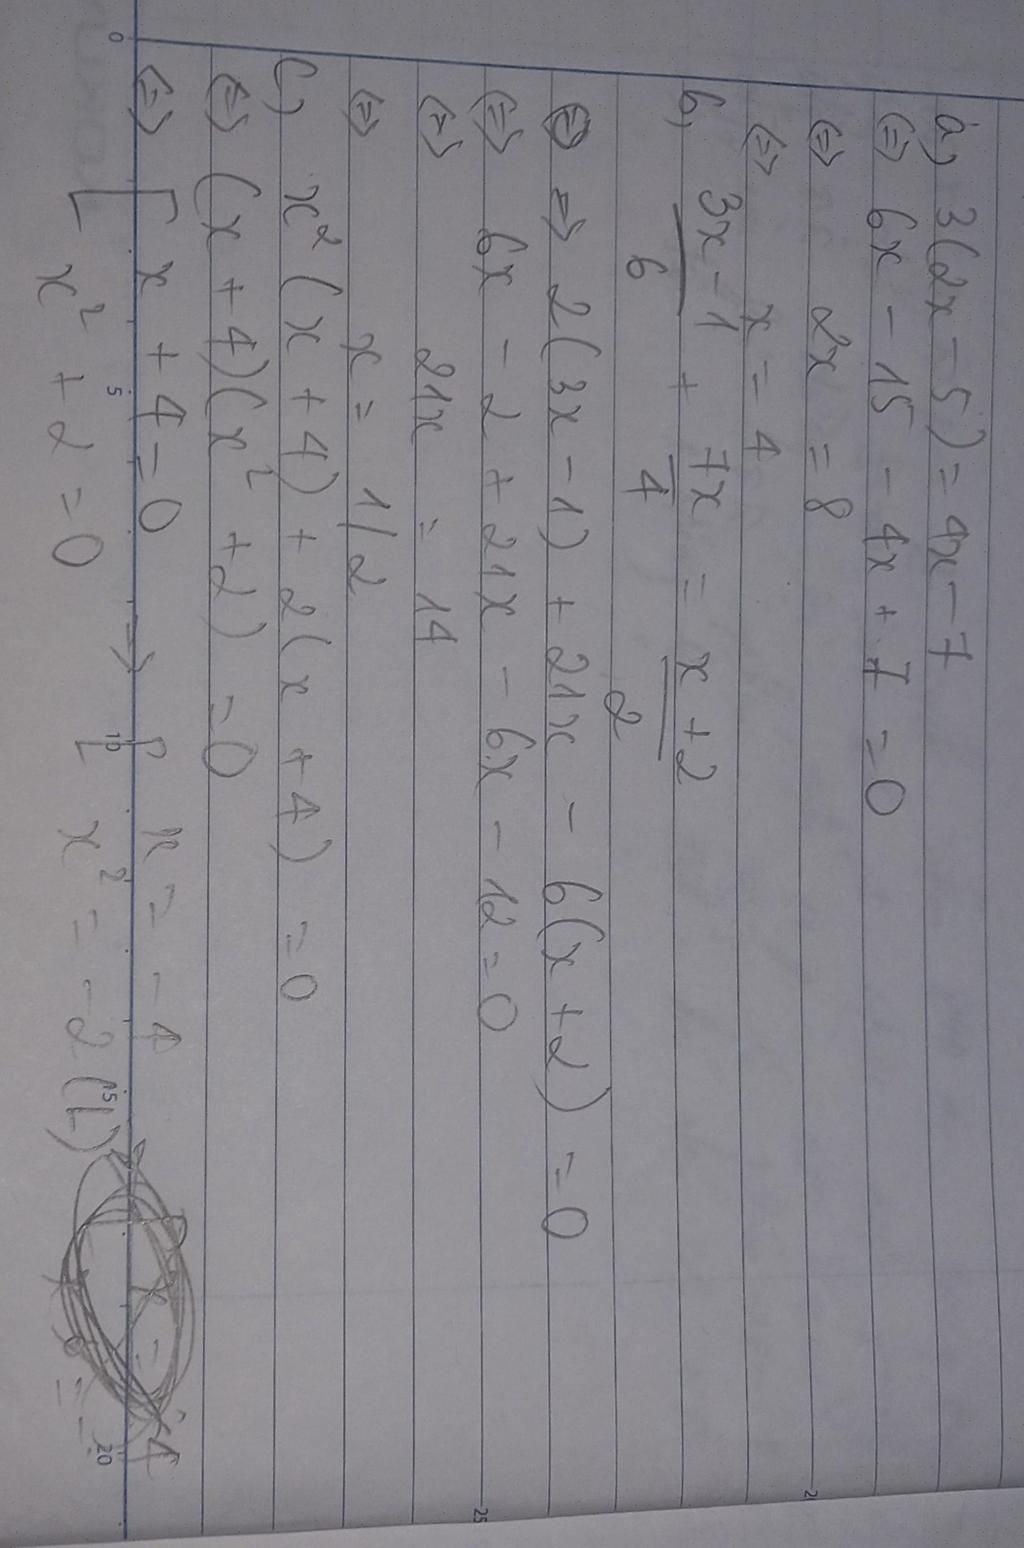 a, 3(2x - 5) = 4x - 7
<=> 6x - 15 - 4x + 7 = 0
<=> 2x = 8
<=> x = 4
b, (3x - 1)/6 + 7x/4 = (x + 2)/2
=> 2(3x - 1) + 21x - 6(x + 2) = 0
<=> 6x - 2 + 21x - 6x - 12 = 0
<=> 21x = 14
<=> x = 1/2
c, x² (x + 4) + 2(x + 4) = 0
<=> (x + 4)(x² + 2) = 0
<=> [ x + 4 = 0 -> [ x = -4
x² + 2 = 0 x² = -2 (L)
0 5 10 15 20
25